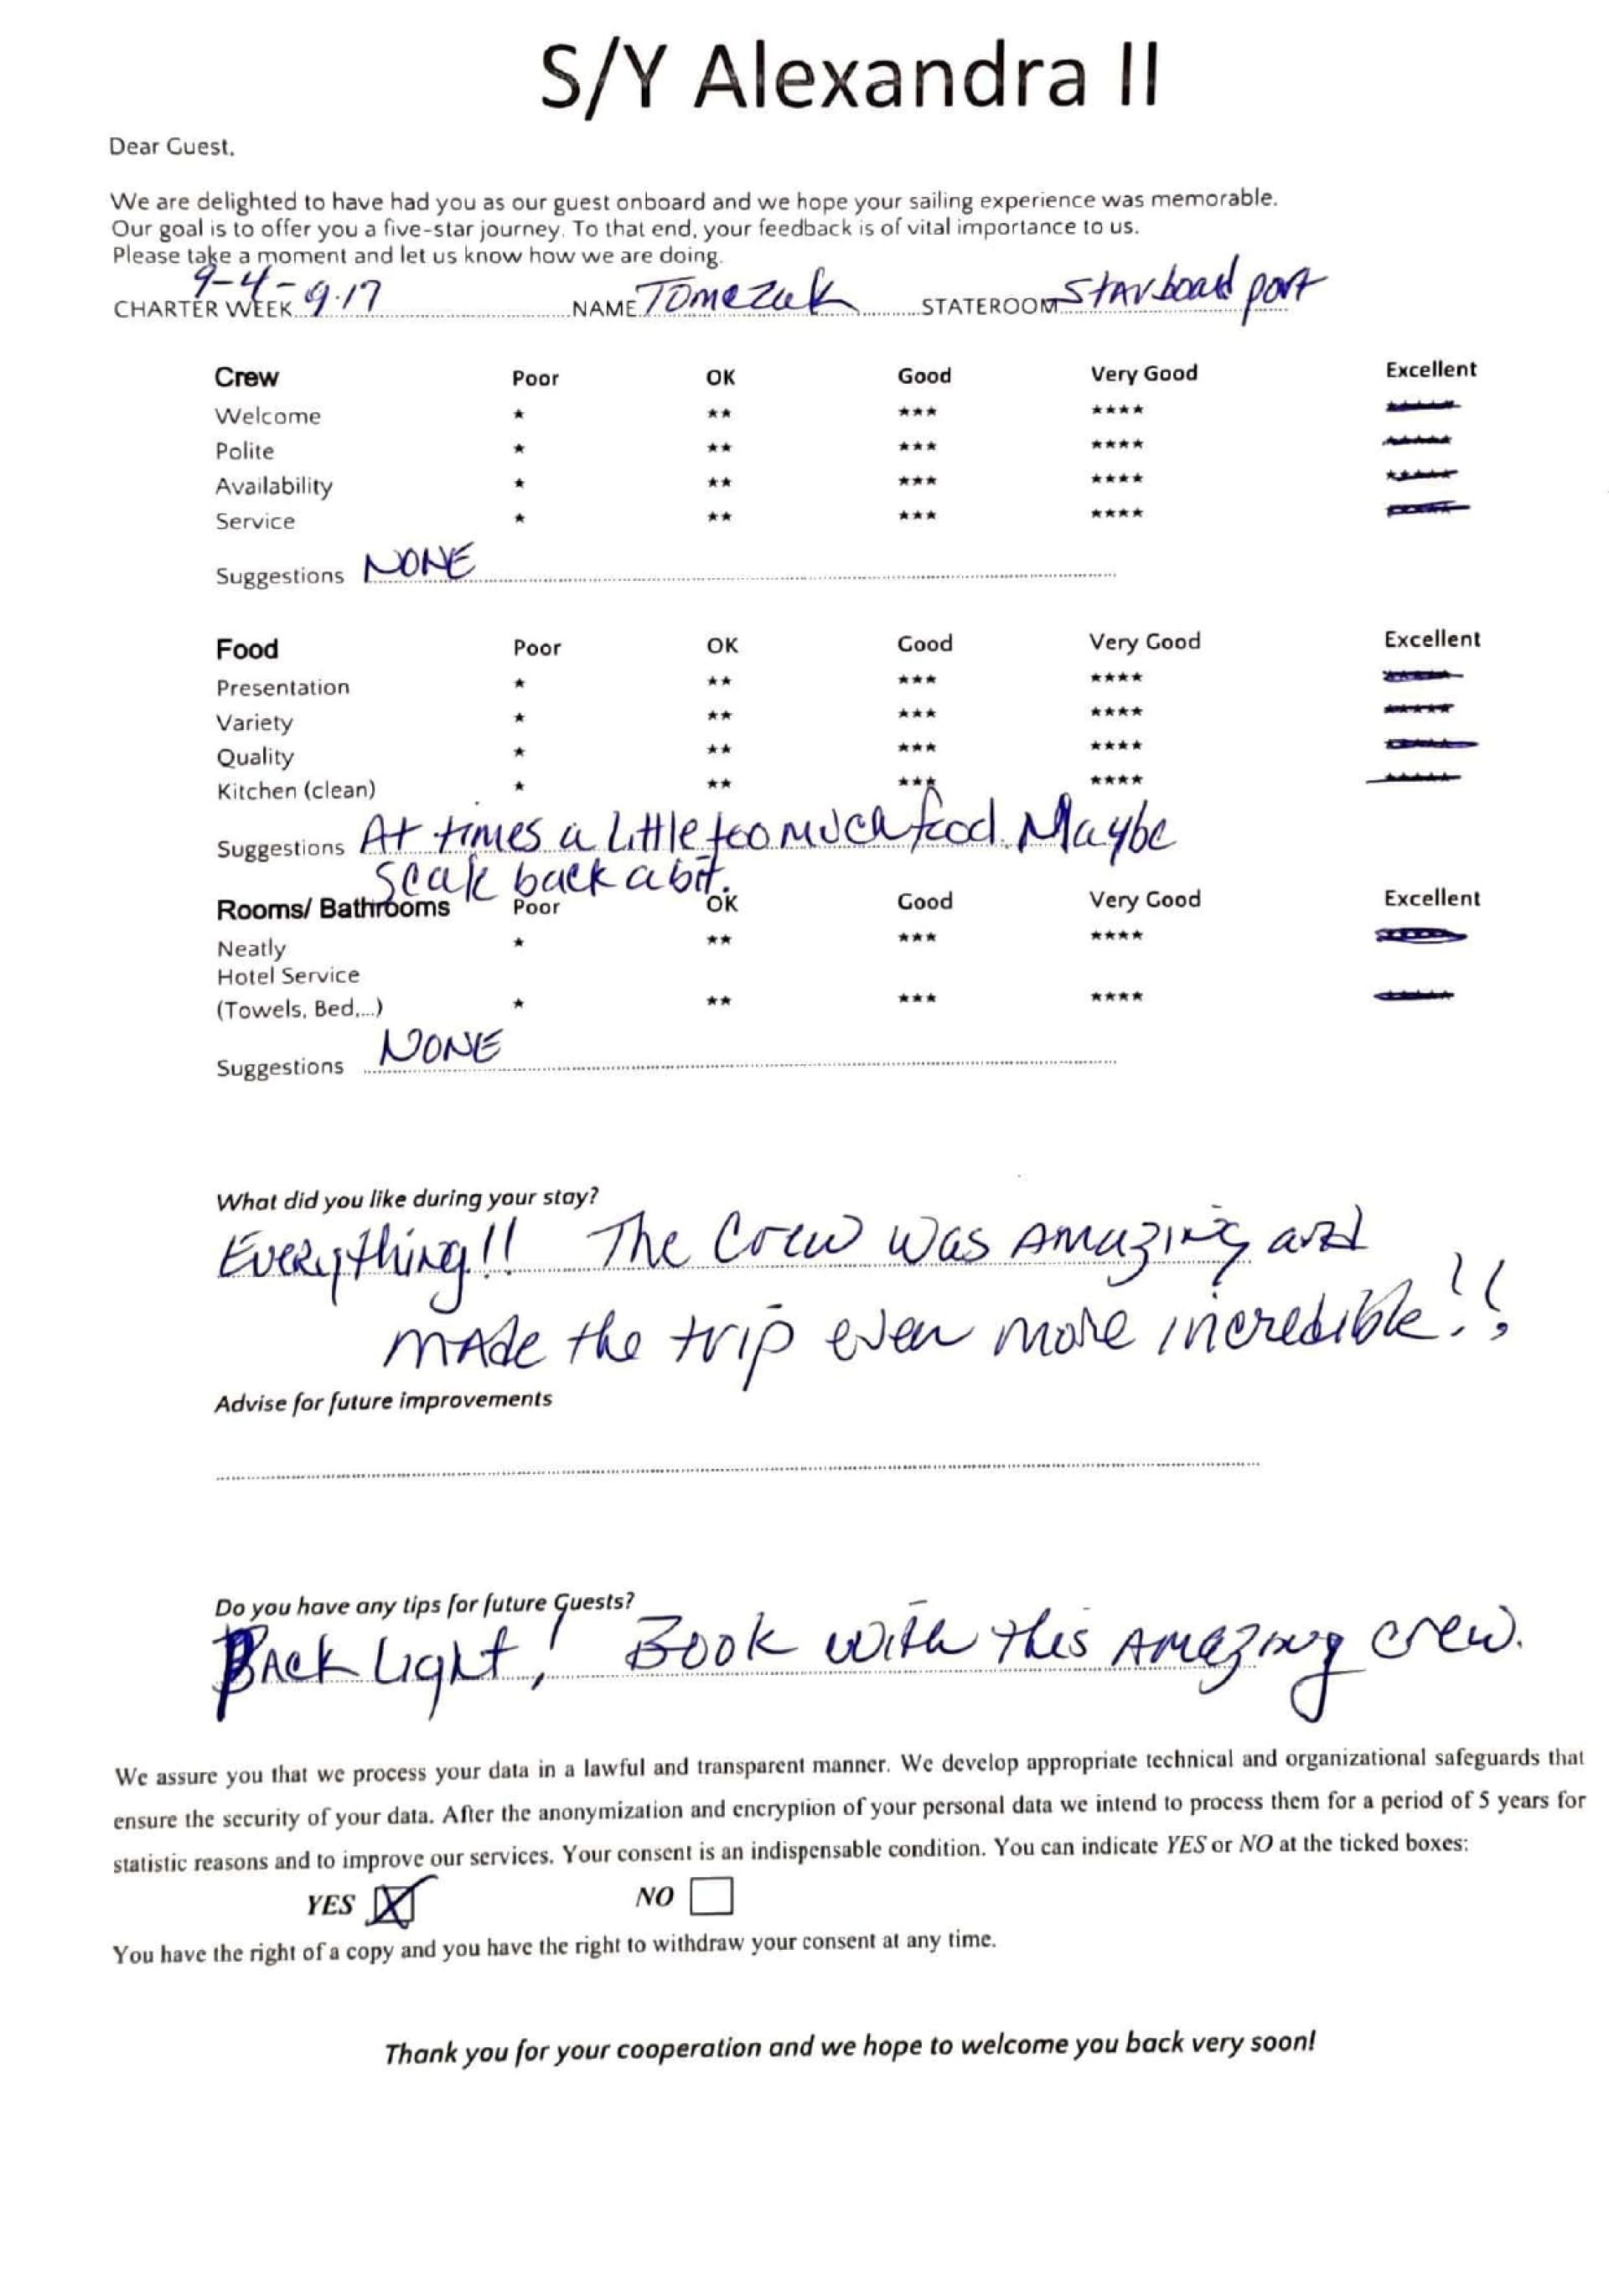 S/Y Alexandra II
Dear Guest,
We are delighted to have had you as our guest onboard and we hope your sailing experience was memorable.
Our goal is to offer you a five-star journey. To that end, your feedback is of vital importance to us.
Please take a moment and let us know how we are doing.
CHARTER WEEK 9-4-9.17 NAME Tomczuk STATEROOM Starboard port
Crew Poor OK Good Very Good Excellent
Welcome * ** *** **** *****
Polite * ** *** **** *****
Availability * ** *** **** *****
Service * ** *** **** *****
Suggestions NONE
Food Poor OK Good Very Good Excellent
Presentation * ** *** **** *****
Variety * ** *** **** *****
Quality * ** *** **** *****
Kitchen (clean) * ** *** **** *****
Suggestions At times a little too much food. Maybe
scale back a bit.
Rooms/ Bathrooms Poor OK Good Very Good Excellent
Neatly * ** *** **** *****
Hotel Service
(Towels, Bed,...) * ** *** **** *****
Suggestions NONE
What did you like during your stay?
Everything!! The Crew was Amazing and
made the trip even more incredible!!
Advise for future improvements
Do you have any tips for future Guests?
Pack Light! Book with this Amazing crew.
We assure you that we process your data in a lawful and transparent manner. We develop appropriate technical and organizational safeguards that
ensure the security of your data. After the anonymization and encryption of your personal data we intend to process them for a period of 5 years for
statistic reasons and to improve our services. Your consent is an indispensable condition. You can indicate YES or NO at the ticked boxes:
YES NO
You have the right of a copy and you have the right to withdraw your consent at any time.
Thank you for your cooperation and we hope to welcome you back very soon!